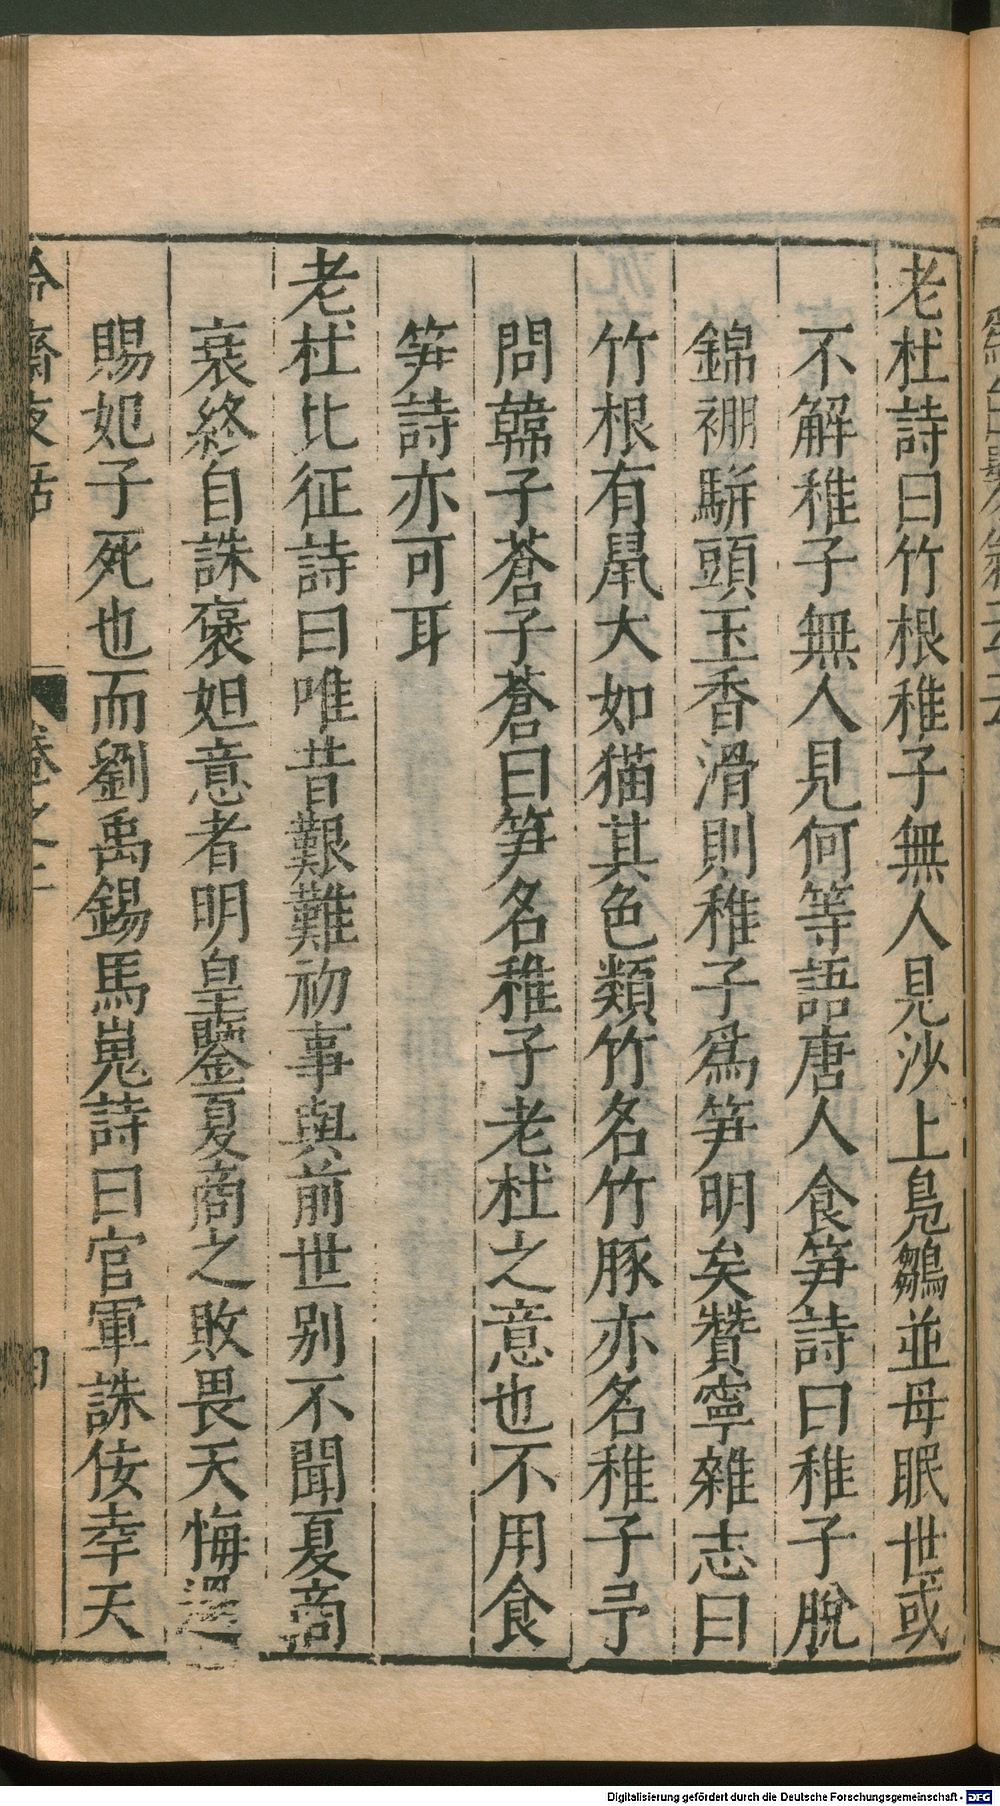 老杜詩曰竹根稚子無人見沙上鳬鶵並母眠世或
不解稚子無人見何等語唐人食笋詩曰稚子脫
錦褓駢頭玉香滑則稚子為笋明矣贊寧雜志曰
竹根有鼠大如猫其色類竹名竹豚亦名稚子予
問韓子蒼子蒼曰笋名稚子老杜之意也不用食
笋詩亦可耳
老杜北征詩曰唯昔艱難初事與前世别不聞夏商
衰終自誅褒妲意者明皇鑒夏商之敗畏天悔過
賜妃子死也而劉禹錫馬嵬詩曰官軍誅佞幸天
冷齋夜話 卷之二 四
Digitalisierung gefördert durch die Deutsche Forschungsgemeinschaft - DFG